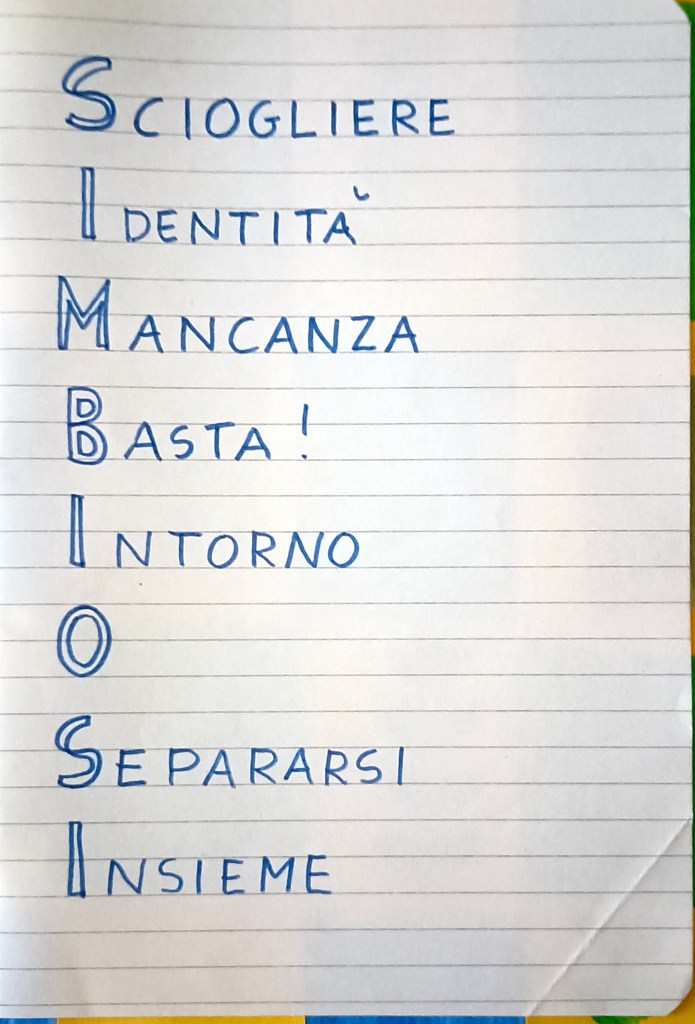 SCIOGLIERE
IDENTITÀ
MANCANZA
BASTA!
INTORNO
O
SEPARARSI
INSIEME